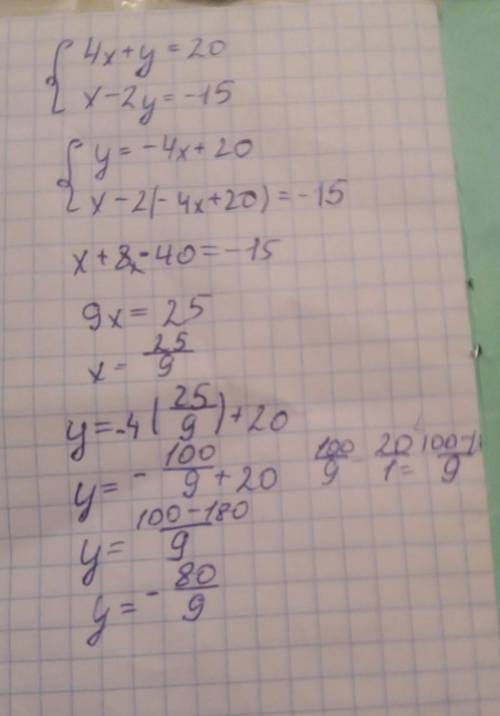 4x+y=20
x-2y=-15
y=-4x+20
x-2(-4x+20)=-15
x+8x-40=-15
9x=25
x=25/9
y=-4(25/9)+20
y=-100/9+20 100/9 - 20/1=
y=(100-180)/9
y=-80/9